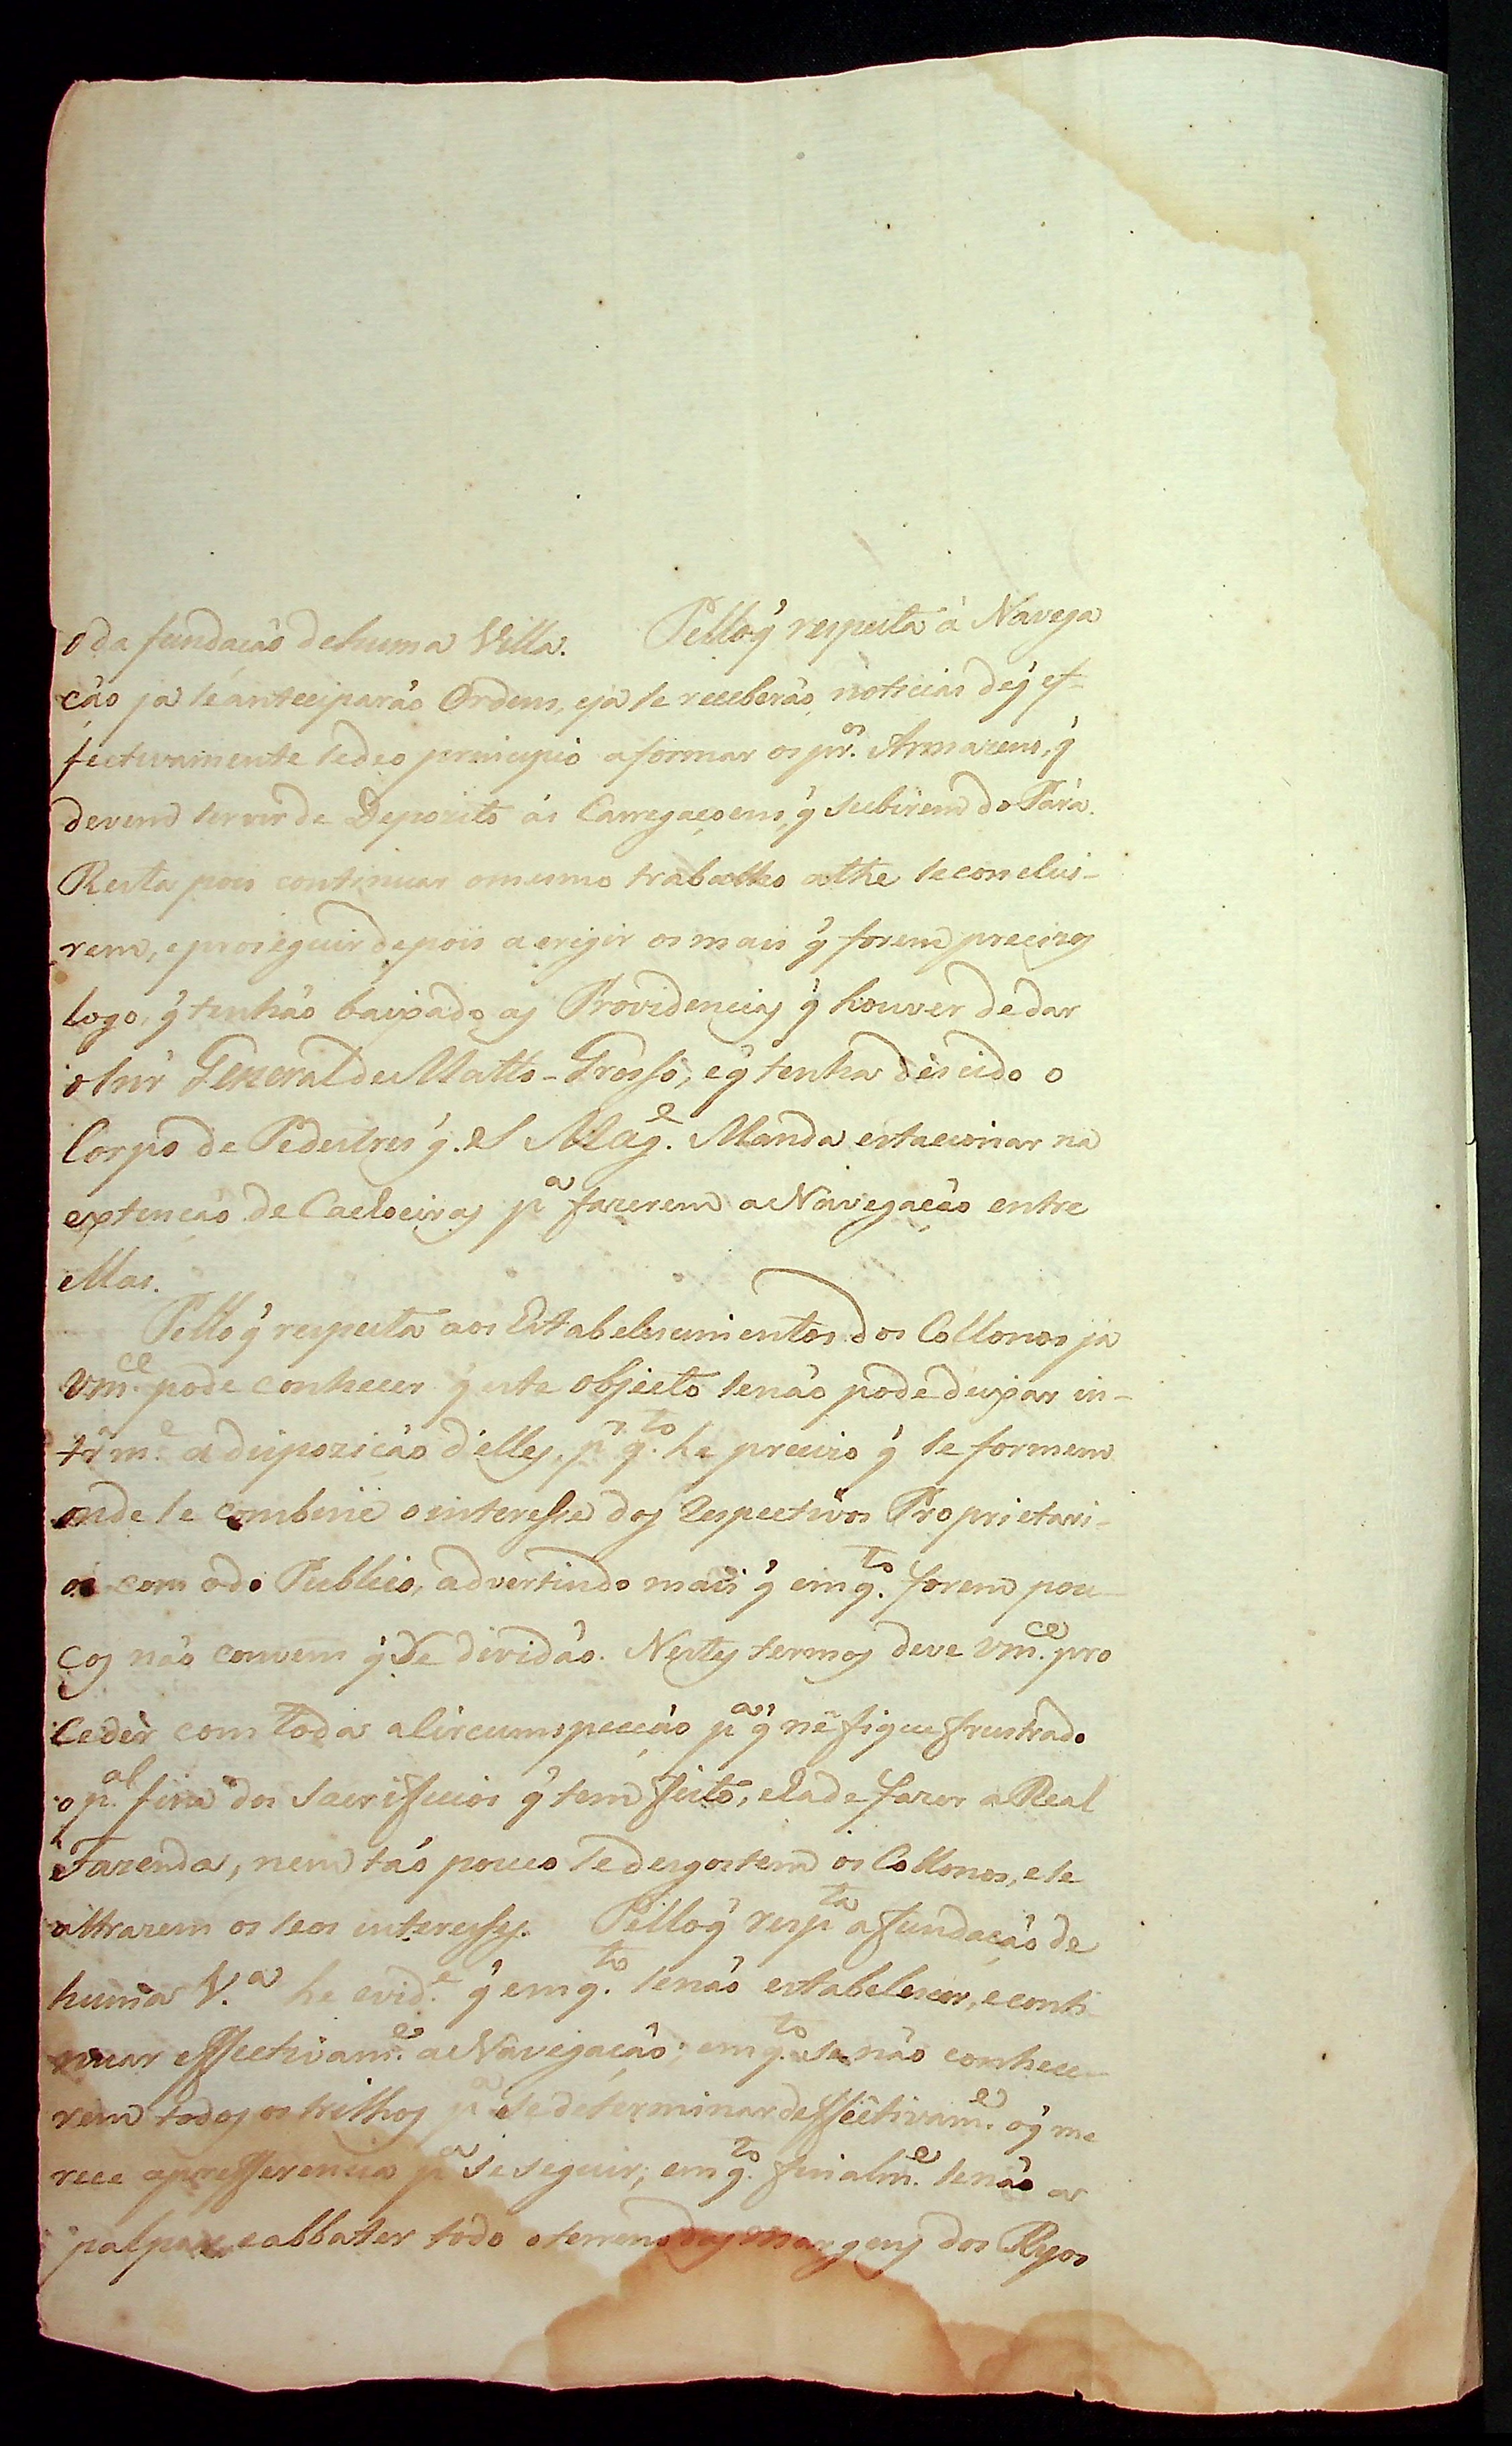 o da fundação de huma Villa. Pello q̃ respeita á Navega
ção ja se anteciparão Ordens, e ja se receberão noticias de q̃ ef-
fectivamente se deo principio a formar os pr.os Armazens, q̃
devem servir de Deposito ás Carregaçoens, q̃ subirem do Pará.
Resta pois continuar o mesmo trabalho athe se conclui-
rem, e proseguir depois a erigir os mais q̃ forem precizos
logo, q̃ tenhão baixado as Providencias q̃ houver de dar
o Snr General de Matto-Grosso, e q̃ tenha descido o
Corpo de Pedestres q̃. S Mag.e Manda estacionar na
extenção de Caxoeiras p.a fazerem a Navegação entre
ellas.
Pello q̃ respeita aos Estabelescimentos dos Collonos ja
Vm.ce pode conhecer q̃ este objecto se não pode deixar in-
tr.m.e a dispozição d'elles, p.r q.to he precizo q̃ se formem
onde se combine o interesse dos respectivos Proprietari-
os com o do Publico, advertindo mais q̃ emq.to forem pou-
cos não convem q̃ se dividão. Nestes termos deve Vm.ce pro
ceder com toda a Circumspecção p.a q̃ nẽ fique frustrado
o p.al fim dos Sacrifficios q̃ tem feito, e ha de fazer a Real
Fazenda, nem tão pouco se desgostem os Collonos, e se
attrazem os seos interesses. Pello q̃ resp.ta a fundação de
huma V.a he evid.e q̃ emq.to se não estabelescer, e conti
nuar effectivam.e a Navegação; emq.to se não conhece-
rem todos os trilhos p.a se determinar deffectivam.e o q̃ me
rece a prefferencia p.a se seguir; emq.to finalm.e se não a
palpar e abbater todo o terreno das margens dos Ryos